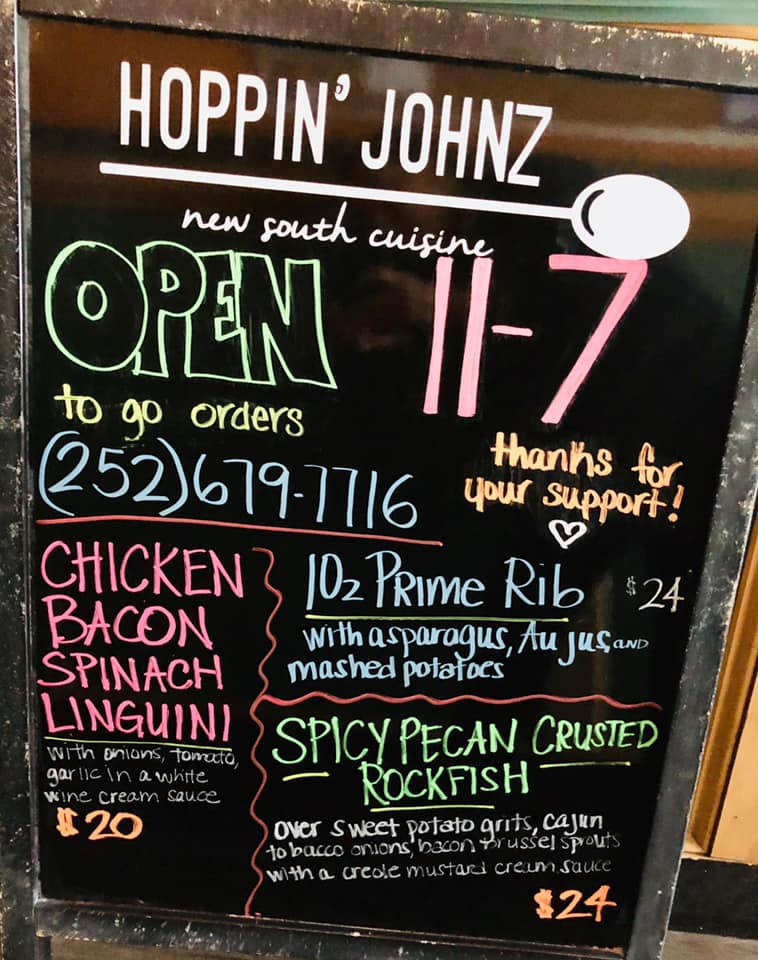 HOPPIN' JOHNZ
new south cuisine
OPEN 11-7
to go orders
(252)679-7716
thanks for
your support!
CHICKEN
BACON
SPINACH
LINGUINI
with onions, tomato,
garlic in a white
wine cream sauce
$20
10z Prime Rib $24
with asparagus, Au jus, and
mashed potatoes
SPICY PECAN CRUSTED
ROCKFISH
over sweet potato grits, cajun
tobacco onions, bacon brussel sprouts
with a creole mustard cream sauce
$24